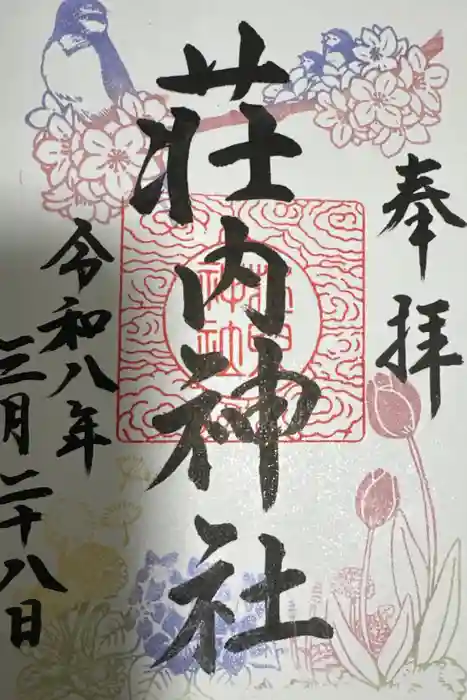 奉拝
荘内神社
荘内
神社
令和八年
三月二十八日